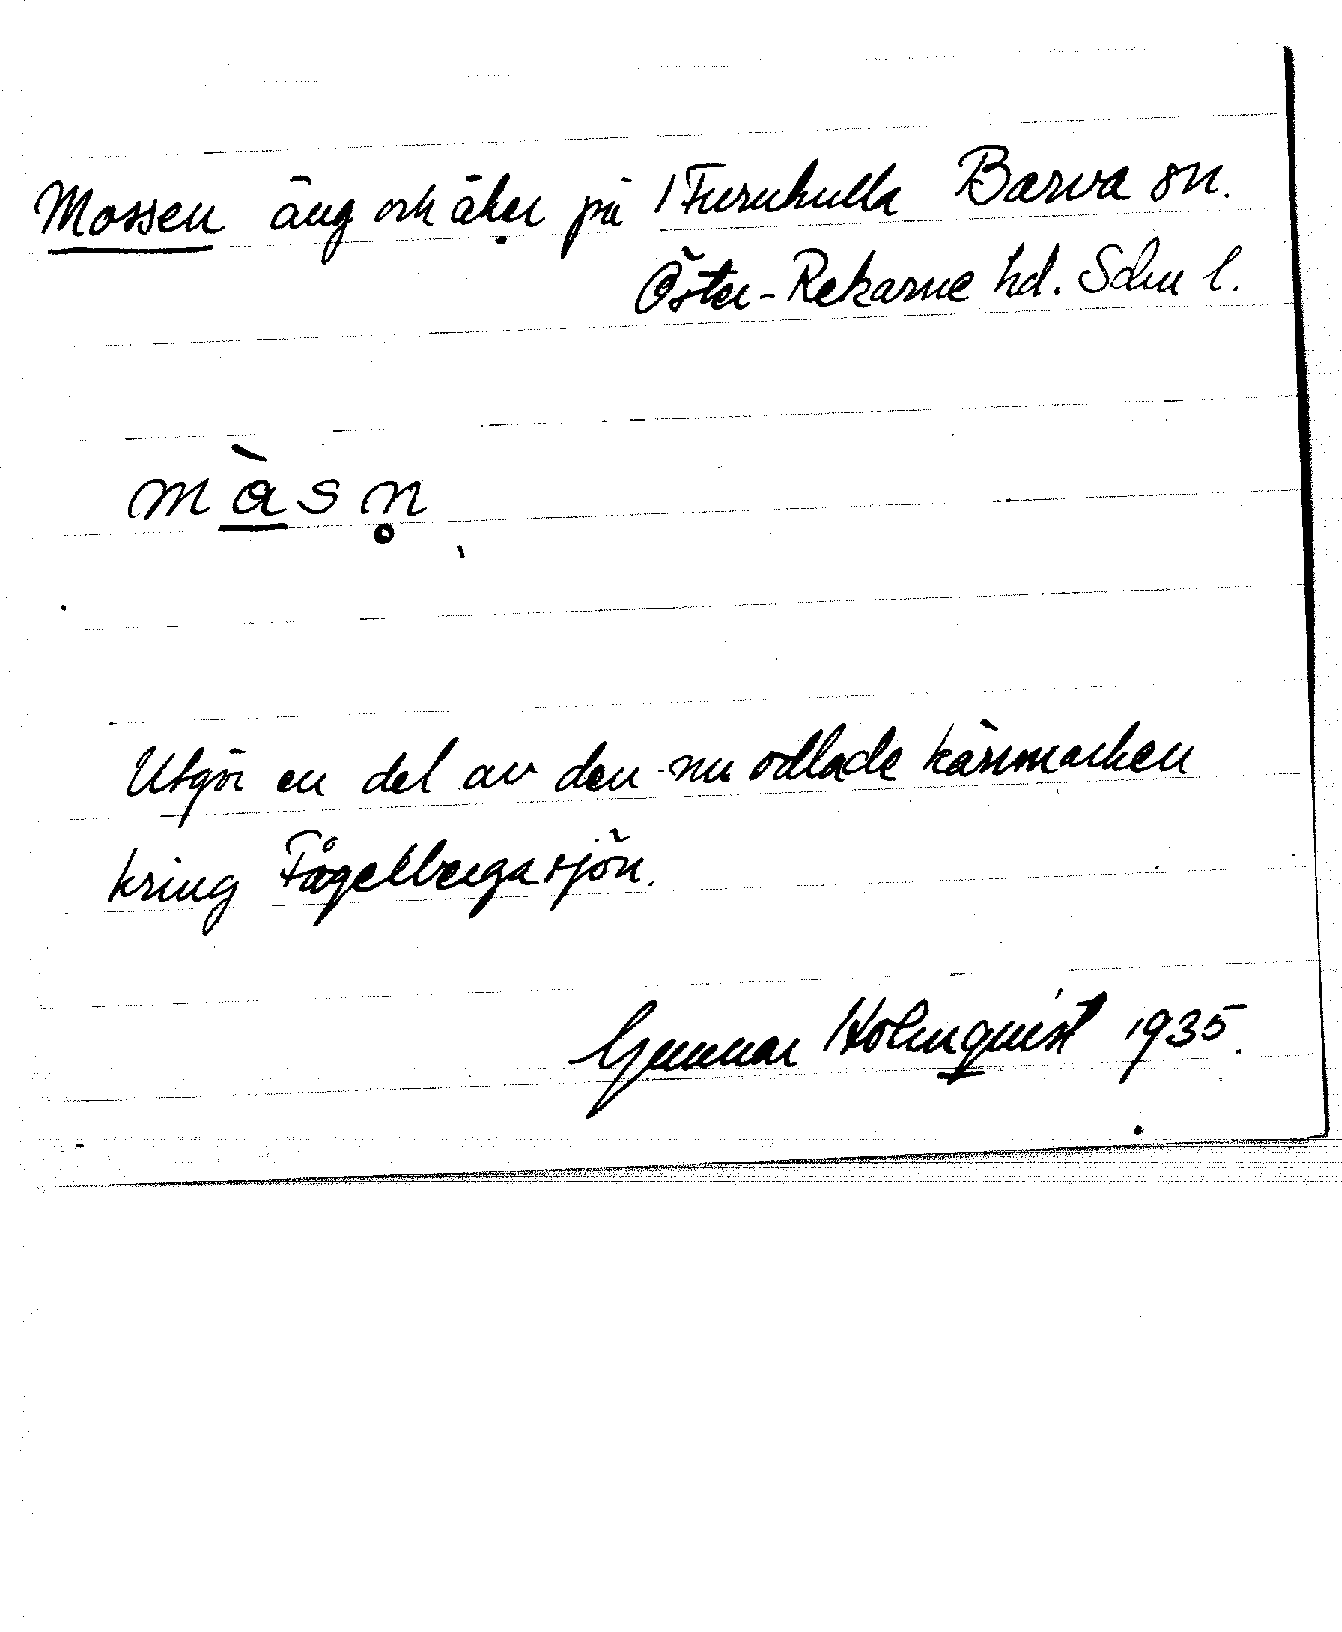 Mossen äng och åker på 1 Furuhulla Barva sn.
Öster-Rekarne hd. Sdm l.
màsn̥
Utgör en del av den nu odlade kärrmarken
kring Fågelbergasjön.
Gunnar Holmquist 1935.